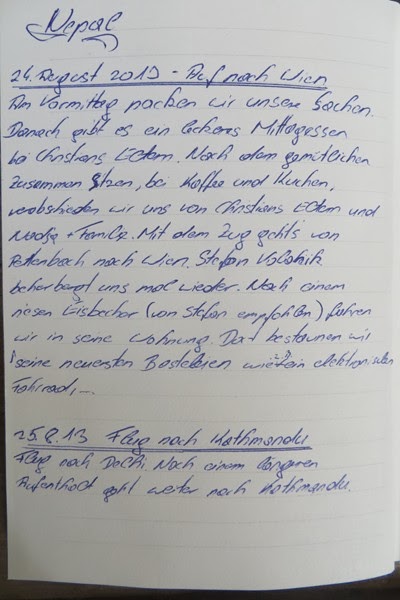 Nepal
24. August 2013 - Auf nach Wien
Am Vormittag packen wir unsere Sachen.
Danach gibt es ein leckeres Mittagessen
bei Christians Eltern. Nach dem gemütlichen
Zusammen Sitzen, bei Kaffee und Kuchen,
verabschieden wir uns von Christians Eltern und
Nadja + Familie. Mit dem Zug geht's von
Pettenbach nach Wien. Stefan
beherbergt uns mal wieder. Nach einem
riesen Eisbecher (von Stefan empfohlen) fahren
wir in seine Wohnung. Dort bestaunen wir
seine neuersten Basteleien wie ein elektronisches
Fahrrad,...
25.8.13 Flug nach Kathmandu
Flug nach Delhi. Nach einem längeren
Aufenthalt geht weiter nach Kathmandu.